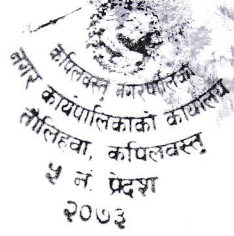 कपिलवस्तु नगरपालिका
नगर कार्यपालिकाको कार्यालय
तौलिहवा, कपिलवस्तु
५ नं. प्रदेश
२०७३